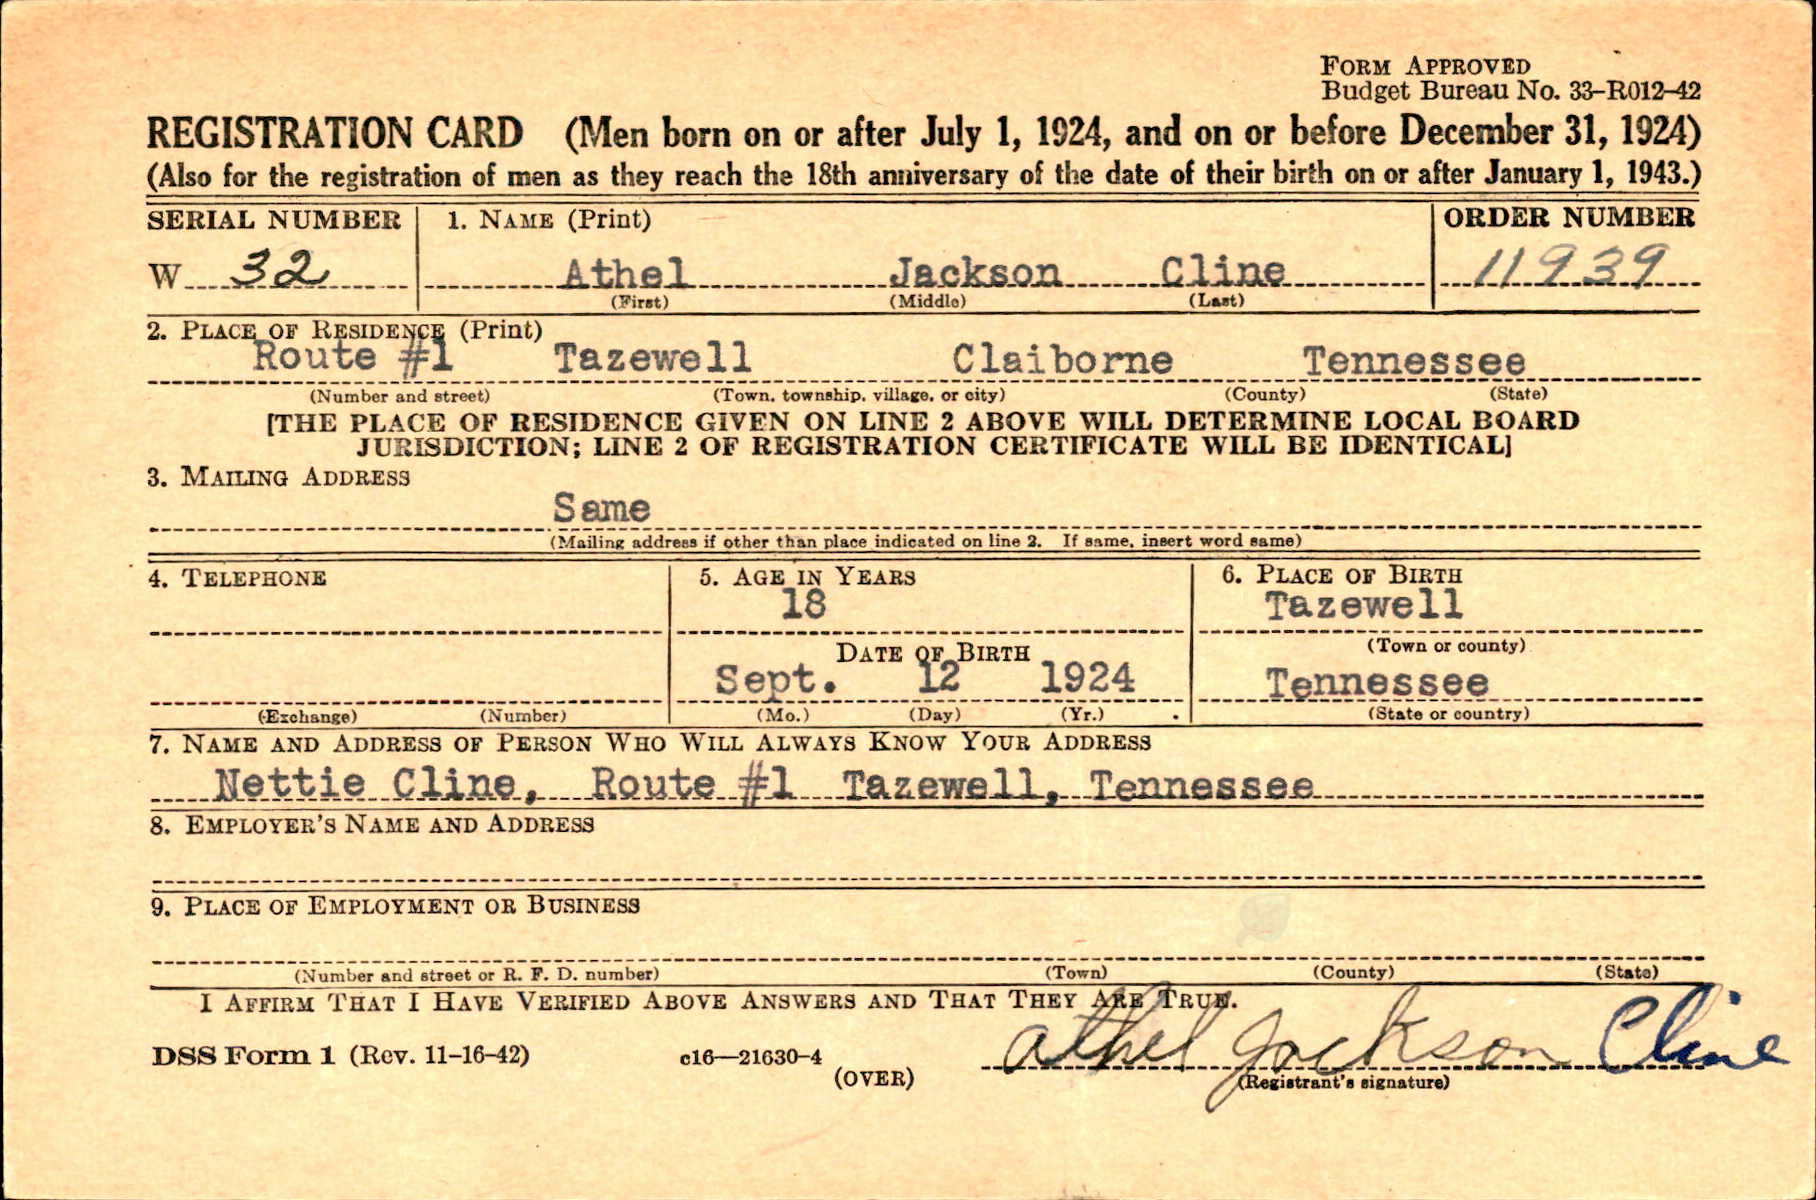 FORM APPROVED
Budget Bureau No. 33-R012-42
REGISTRATION CARD (Men born on or after July 1, 1924, and on or before December 31, 1924)
(Also for the registration of men as they reach the 18th anniversary of the date of their birth on or after January 1, 1943.)
SERIAL NUMBER 1. NAME (Print) ORDER NUMBER
W 32 Athel Jackson Cline 11939
(First) (Middle) (Last)
2. PLACE OF RESIDENCE (Print)
Route #1 Tazewell Claiborne Tennessee
(Number and street) (Town, township, village, or city) (County) (State)
[THE PLACE OF RESIDENCE GIVEN ON LINE 2 ABOVE WILL DETERMINE LOCAL BOARD
JURISDICTION; LINE 2 OF REGISTRATION CERTIFICATE WILL BE IDENTICAL]
3. MAILING ADDRESS
Same
(Mailing address if other than place indicated on line 2. If same, insert word same)
4. TELEPHONE 5. AGE IN YEARS 6. PLACE OF BIRTH
18 Tazewell
DATE OF BIRTH (Town or county)
Sept. 12 1924 Tennessee
(Exchange) (Number) (Mo.) (Day) (Yr.) (State or country)
7. NAME AND ADDRESS OF PERSON WHO WILL ALWAYS KNOW YOUR ADDRESS
Nettie Cline, Route #1 Tazewell, Tennessee
8. EMPLOYER'S NAME AND ADDRESS
9. PLACE OF EMPLOYMENT OR BUSINESS
(Number and street or R. F. D. number) (Town) (County) (State)
I AFFIRM THAT I HAVE VERIFIED ABOVE ANSWERS AND THAT THEY ARE TRUE.
DSS Form 1 (Rev. 11-16-42) c16—21630-4 Athel Jackson Cline
(OVER) (Registrant's signature)